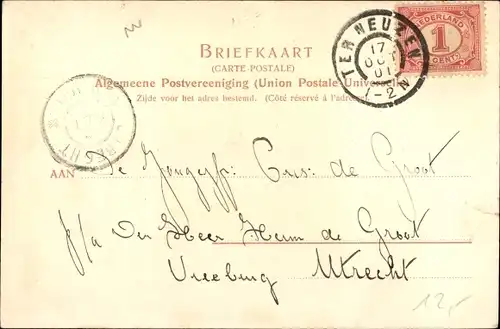 BRIEFKAART
(CARTE POSTALE)
Algemeene Postvereeniging (Union Postale Univers
Zijde voor het adres bestemd. (Côté réservé à l'adres
TER NEUZEN
17
OCT
01
7-2N
NEDERLAND
1
CENT
UTRECHT
AAN
De Jongejfr: Cris: de Groot
p/a Den Heer Herm de Groot
Vreeburg Utrecht
12,-